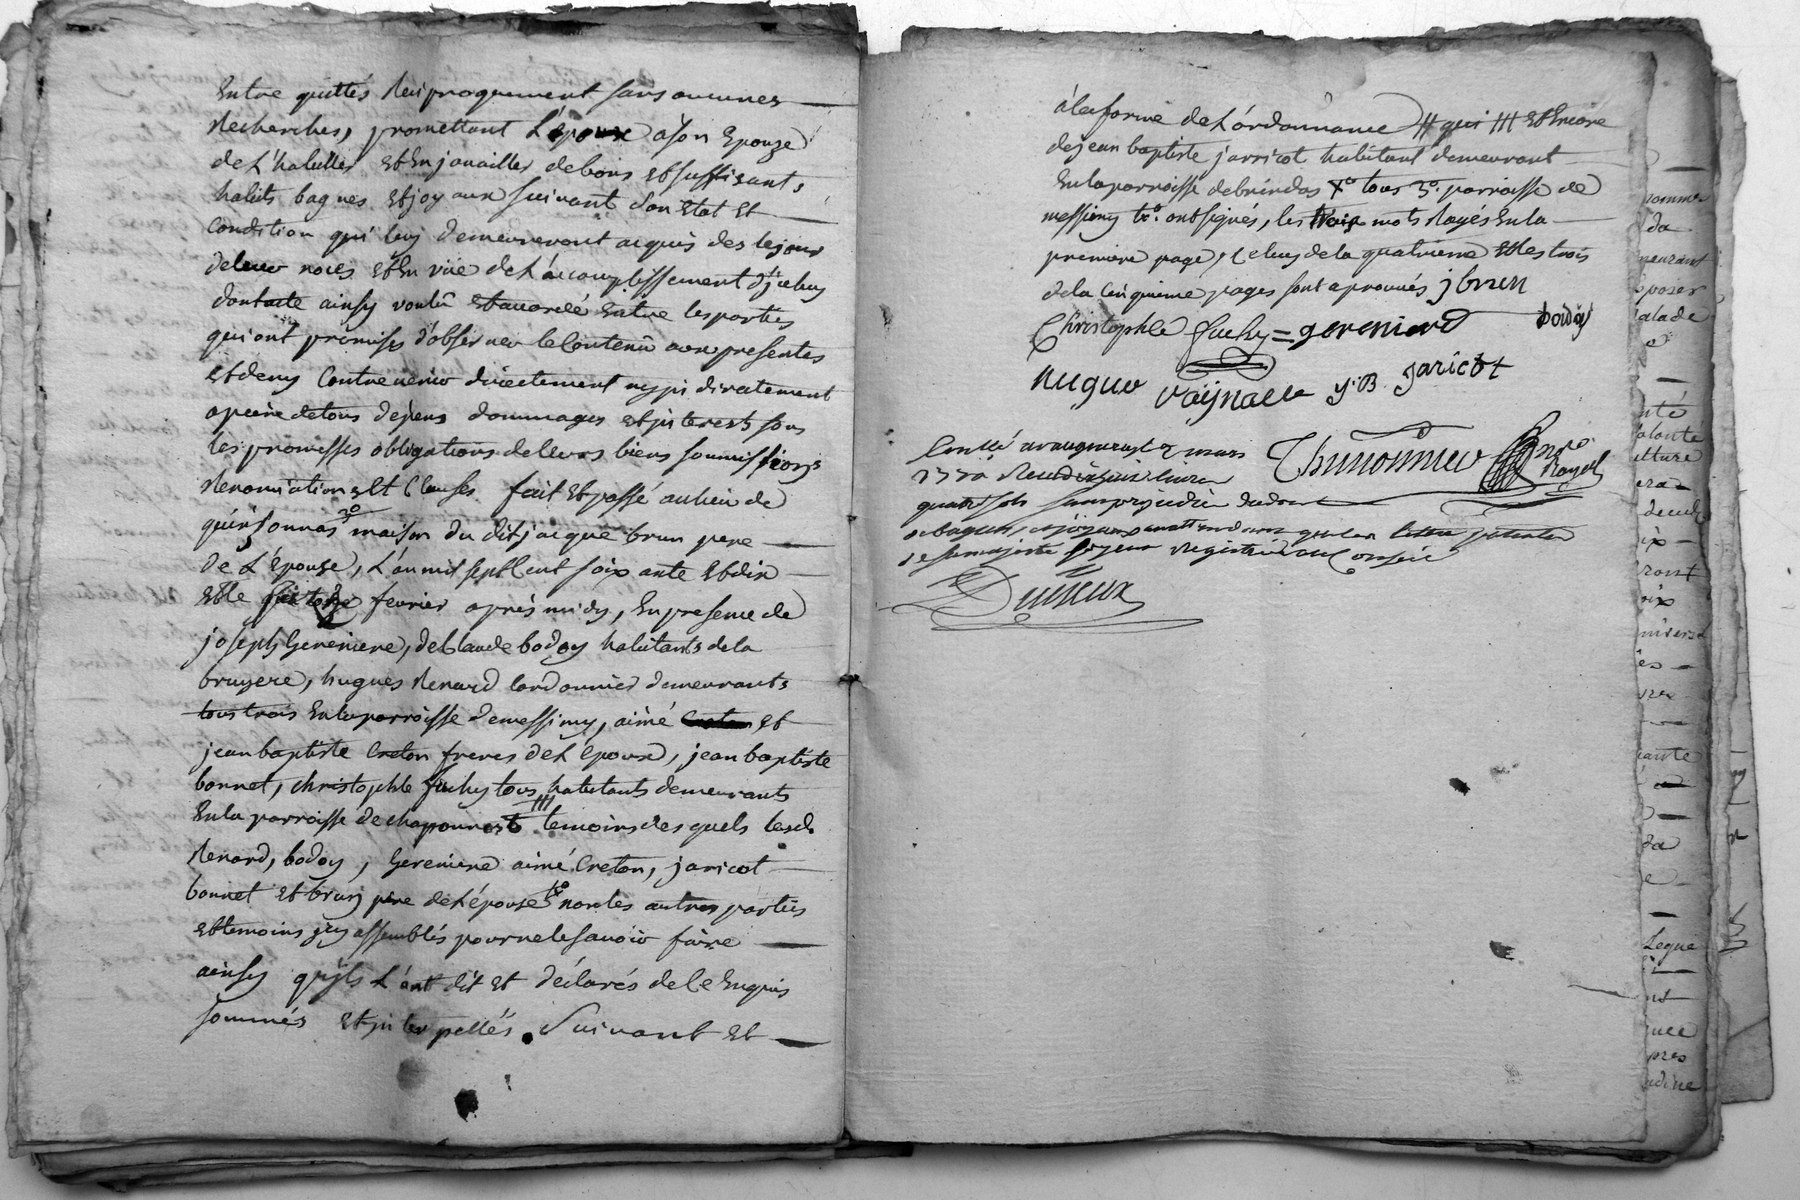 Entre quittés Reciproquement sans aucunes
Recherches, promettant L'époux a son Epouze
de L'habiller et Enjoüailler de bons et suffisants
habits bagues et joyaux suivant Son Etat et
Condition qui luy demeureront acquis des le jour
de leur noces et En viie de L'accomplissement d'jceluy
dont acte ainsy voulû et acordé Entre les parties
qui ont promises d'observer le Contenû aux presentes
et de ny Contrevenir directement ny jndiratement
a peine de tous depens dommages et jnterests sous
les promesses obligations de leurs biens soumissions
Renonciations et Clauses. fait et passé au lieu de
quinsonnas 3o maison du dit jacque brun pere
de L'Epouze, L'an mil sept Cent soixante et dix
et le fevrier après midy, En presence de
joseph Gereniere, de Claude bodoy habitants de la
bruyere, hugues Renard Cordonnier demeurants
tous trois En la parroisse de messimy, aimé Et
jean baptiste Creton freres de L'Epouse, jean baptiste
bonnet, christophle fuchy tous habitants demeurants
En la parroisse de chaponnost III temoins des quels lesd.
Renard, bodoy, Gereniere aimé Creton, jaricot
bonnet et brun pere de L'épouse non les autres parties
et temoins jcy assemblés pour ne le savoir faire
ainsy qu'jls L'ont dit et déclarés de Ce Enquis
sommés et jnterpellés. Suivant et
à la forme de L'órdonnance # qui III et Encore
de jean baptiste jarricot habitant demeurant
En la parroisse de brindas Xo tous 3o. parroisse de
messimy ont signés, les trois mots Rayés En la
premiere page, Celuy de la quatrieme et les trois
de la Cinquieme pages sont aprouvés j brun
Christophle fuchy = gereniere bodoy
j. B Jaricot
Conllé a vaugneray le 2 mars
1770 Reçu livres
quatre sols sans prejudice du dont
et bagues, et joyaux que les lettres patentes
de sa majesté soyent Registrées au Conseil